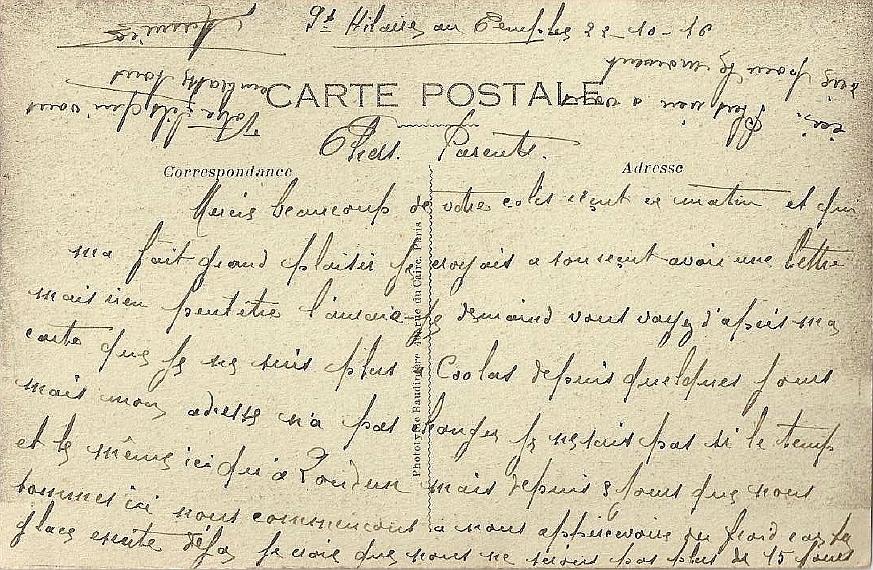 St Hilaire au Temple 22-10-16
CARTE POSTALE
Chers Parents.
Correspondance
Adresse
Mercis beaucoup de votre colis reçut ce matin et qui
ma fait grand plaisir je croyais a son reçut avoir une lettre
mais rien peut etre l'aurai-je demain vous voyez d'apres ma
carte que je ne suis plus a Coolus depuis quelques jours
mais mon adresse n'a pas changer je ne sais pas si le temp
et le même ici qu'a Loudun mais depuis 8 jours que nous
sommes ici nous commencont a nous appercevoir du froid car la
glace existe déja je crois que nous ne serions pas plus de 15 jours
ici.
Plus rien a vous
pour le moment
Votre fils qui vous
embrasse tous
Phototypie Baudinière Paris